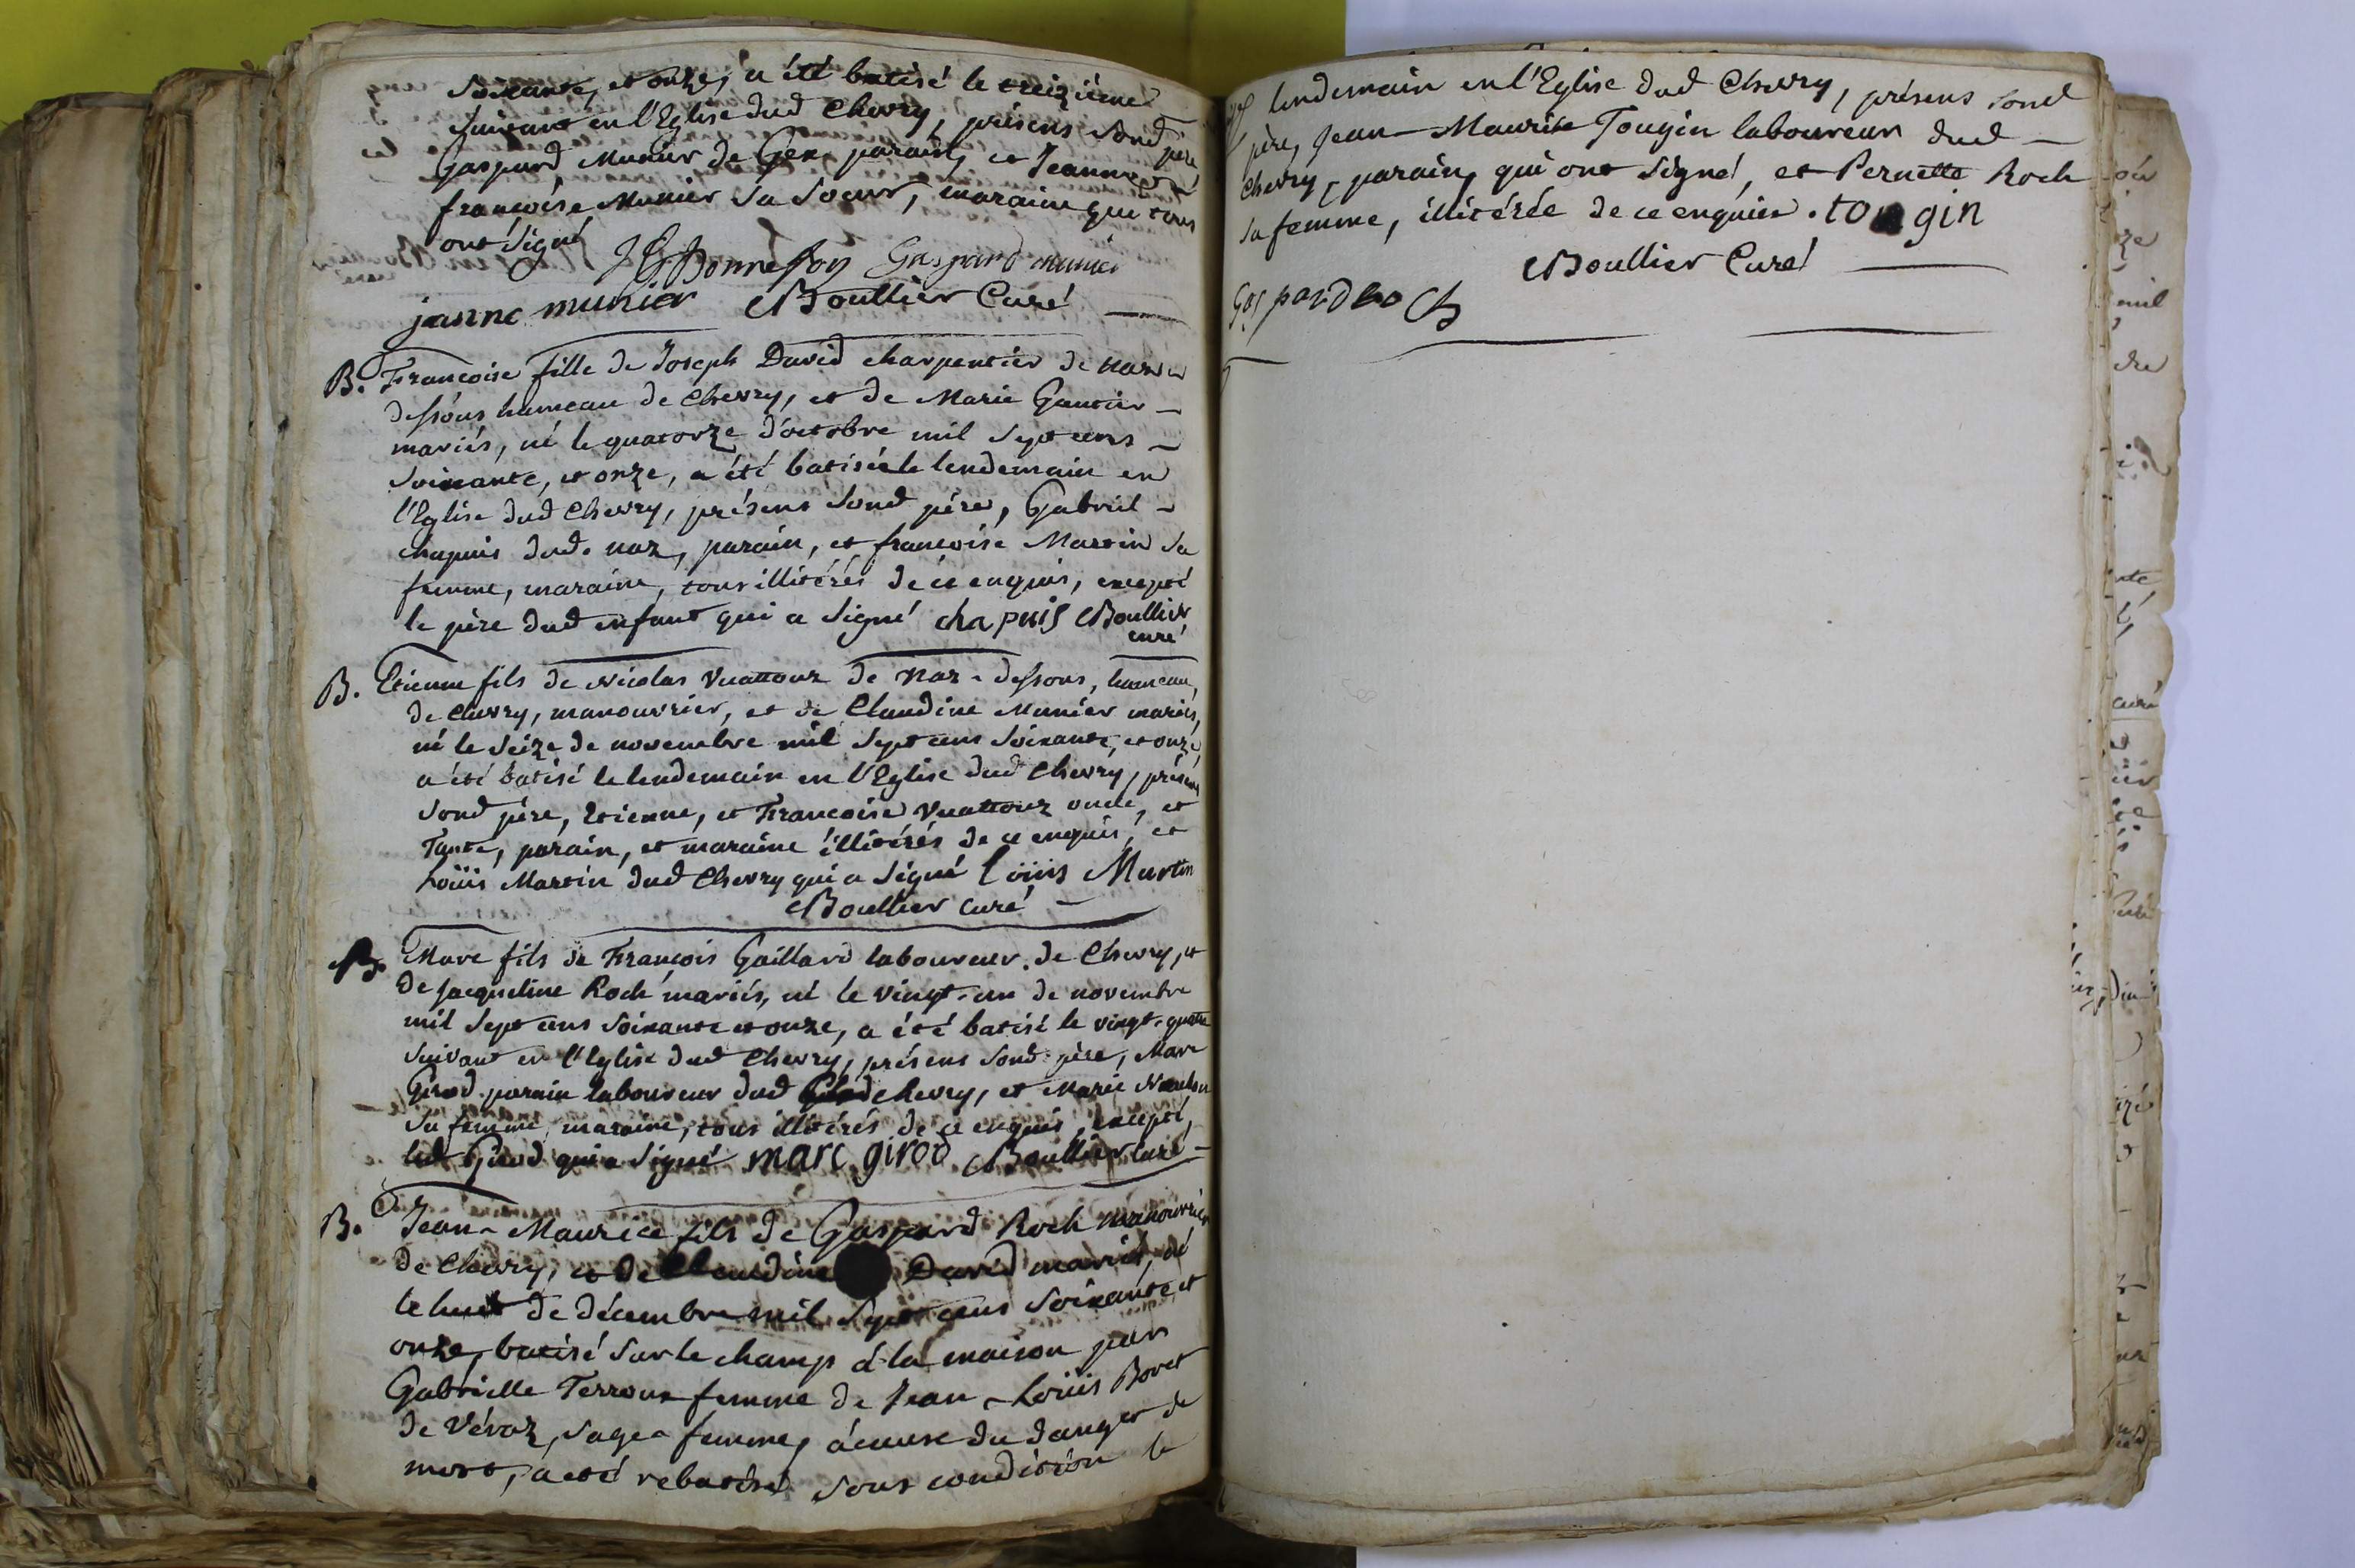 soixante, et onze, a été batisé le treizième
suivant en l'Eglise dud Chevry, présens sond père,
Gaspard Munier de Gex, parain, et Jeanne
françoise Munier sa soeur, maraine qui tous
ont signé
JGBonnefoy Gaspard munier
janne munier Boullier Curé
B. Françoise fille de Joseph David charpentier de naz
dessous hameau de Chevry, et de Marie Gautier
mariés, né le quatorze d'octobre mil sept cens
soixante, et onze, a été batisée le lendemain en
l'Eglise dud Chevry, présens sond père, Gabriel
chapuis dud. naz, parain, et françoise Martin sa
femme, maraine, tous illitérés de ce enquis, excepté
le père dud enfant qui a signé chapuis Boullier
curé
B. Etienne fils de Nicolas Vuattoux de Naz-dessous, hameau,
de Chevry, manouvrier, et de Claudine Munier mariés,
né le seize de novembre mil sept cens soixante, et onze,
a été batisé le lendemain en l'Eglise dud Chevry, présens
sond père, Etienne, et Françoise Vuattoux oncle, et
Tante, parain, et maraine illitérés de ce enquis, et
Loüis Martin dud Chevry qui a signé Loüis Martin
Boullier curé
B. Marc fils de François Gaillard laboureur de Chevry, et
de Jacqueline Roch mariés, né le vingt-un de novembre
mil sept cens soixante et onze, a été batisé le vingt-quatre
suivant en l'Eglise dud Chevry, présens sond père, Marc
Girod parain laboureur dud Chevry, et Marie
sa femme, maraine, tous illitérés de ce enquis, excepté,
led Girod qui a signé marc girod Boullier Curé
B. Jean-Maurice fils de Gaspard Roch manouvrier
de Chevry, et de Claudine David mariés, né
le huit de décembre mil sept cens soixante, et
onze, batisé sur le champ à la maison par
Gabrielle Terroux femme de Jean-Loüis Boret
de Véraz, sage-femme, à cause du danger de
mort, a été rebatisé sous condition le
lendemain en l'Eglise dud Chevry, présens sond
père, Jean-Maurise Tougin laboureur dud
Chevry, parain, qui ont signé, et Pernette Roch
sa femme, illitérée de ce enquise. tougin
Boullier Curé
gaspard roch